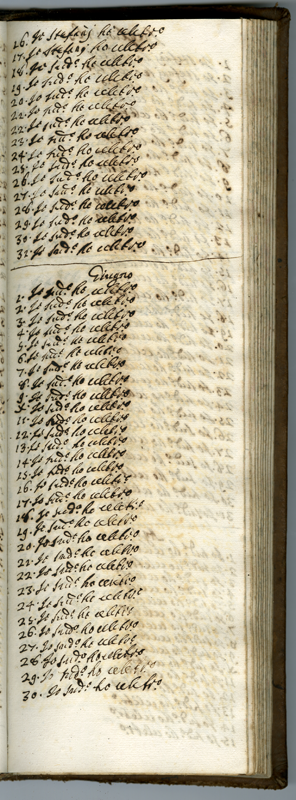 16. Io Stefanj ho celebro
17. Io Stefanj ho celebro
18. Io sud.º ho celebro
19. Io sud.º ho celebro
20. Io sud.º ho celebro
21. Io sud.º ho celebro
22. Io sud.º ho celebro
23. Io sud.º ho celebro
24. Io sud.º ho celebro
25. Io sud.º ho celebro
26. Io sud.º ho celebro
27. Io sud.º ho celebro
28. Io sud.º ho celebro
29. Io sud.º ho celebro
30. Io sud.º ho celebro
31. Io sud.º ho celebro
Giugno
1. Io sud.º ho celebro
2. Io sud.º ho celebro
3. Io sud.º ho celebro
4. Io sud.º ho celebro
5. Io sud.º ho celebro
6. Io sud.º ho celebro
7. Io sud.º ho celebro
8. Io sud.º ho celebro
9. Io sud.º ho celebro
10. Io sud.º ho celebro
11. Io sud.º ho celebro
12. Io sud.º ho celebro
13. Io sud.º ho celebro
14. Io sud.º ho celebro
15. Io sud.º ho celebro
16. Io sud.º ho celebro
17. Io sud.º ho celebro
18. Io sud.º ho celebro
19. Io sud.º ho celebro
20. Io sud.º ho celebro
21. Io sud.º ho celebro
22. Io sud.º ho celebro
23. Io sud.º ho celebro
24. Io sud.º ho celebro
25. Io sud.º ho celebro
26. Io sud.º ho celebro
27. Io sud.º ho celebro
28. Io sud.º ho celebro
29. Io sud.º ho celebro
30. Io sud.º ho celebro